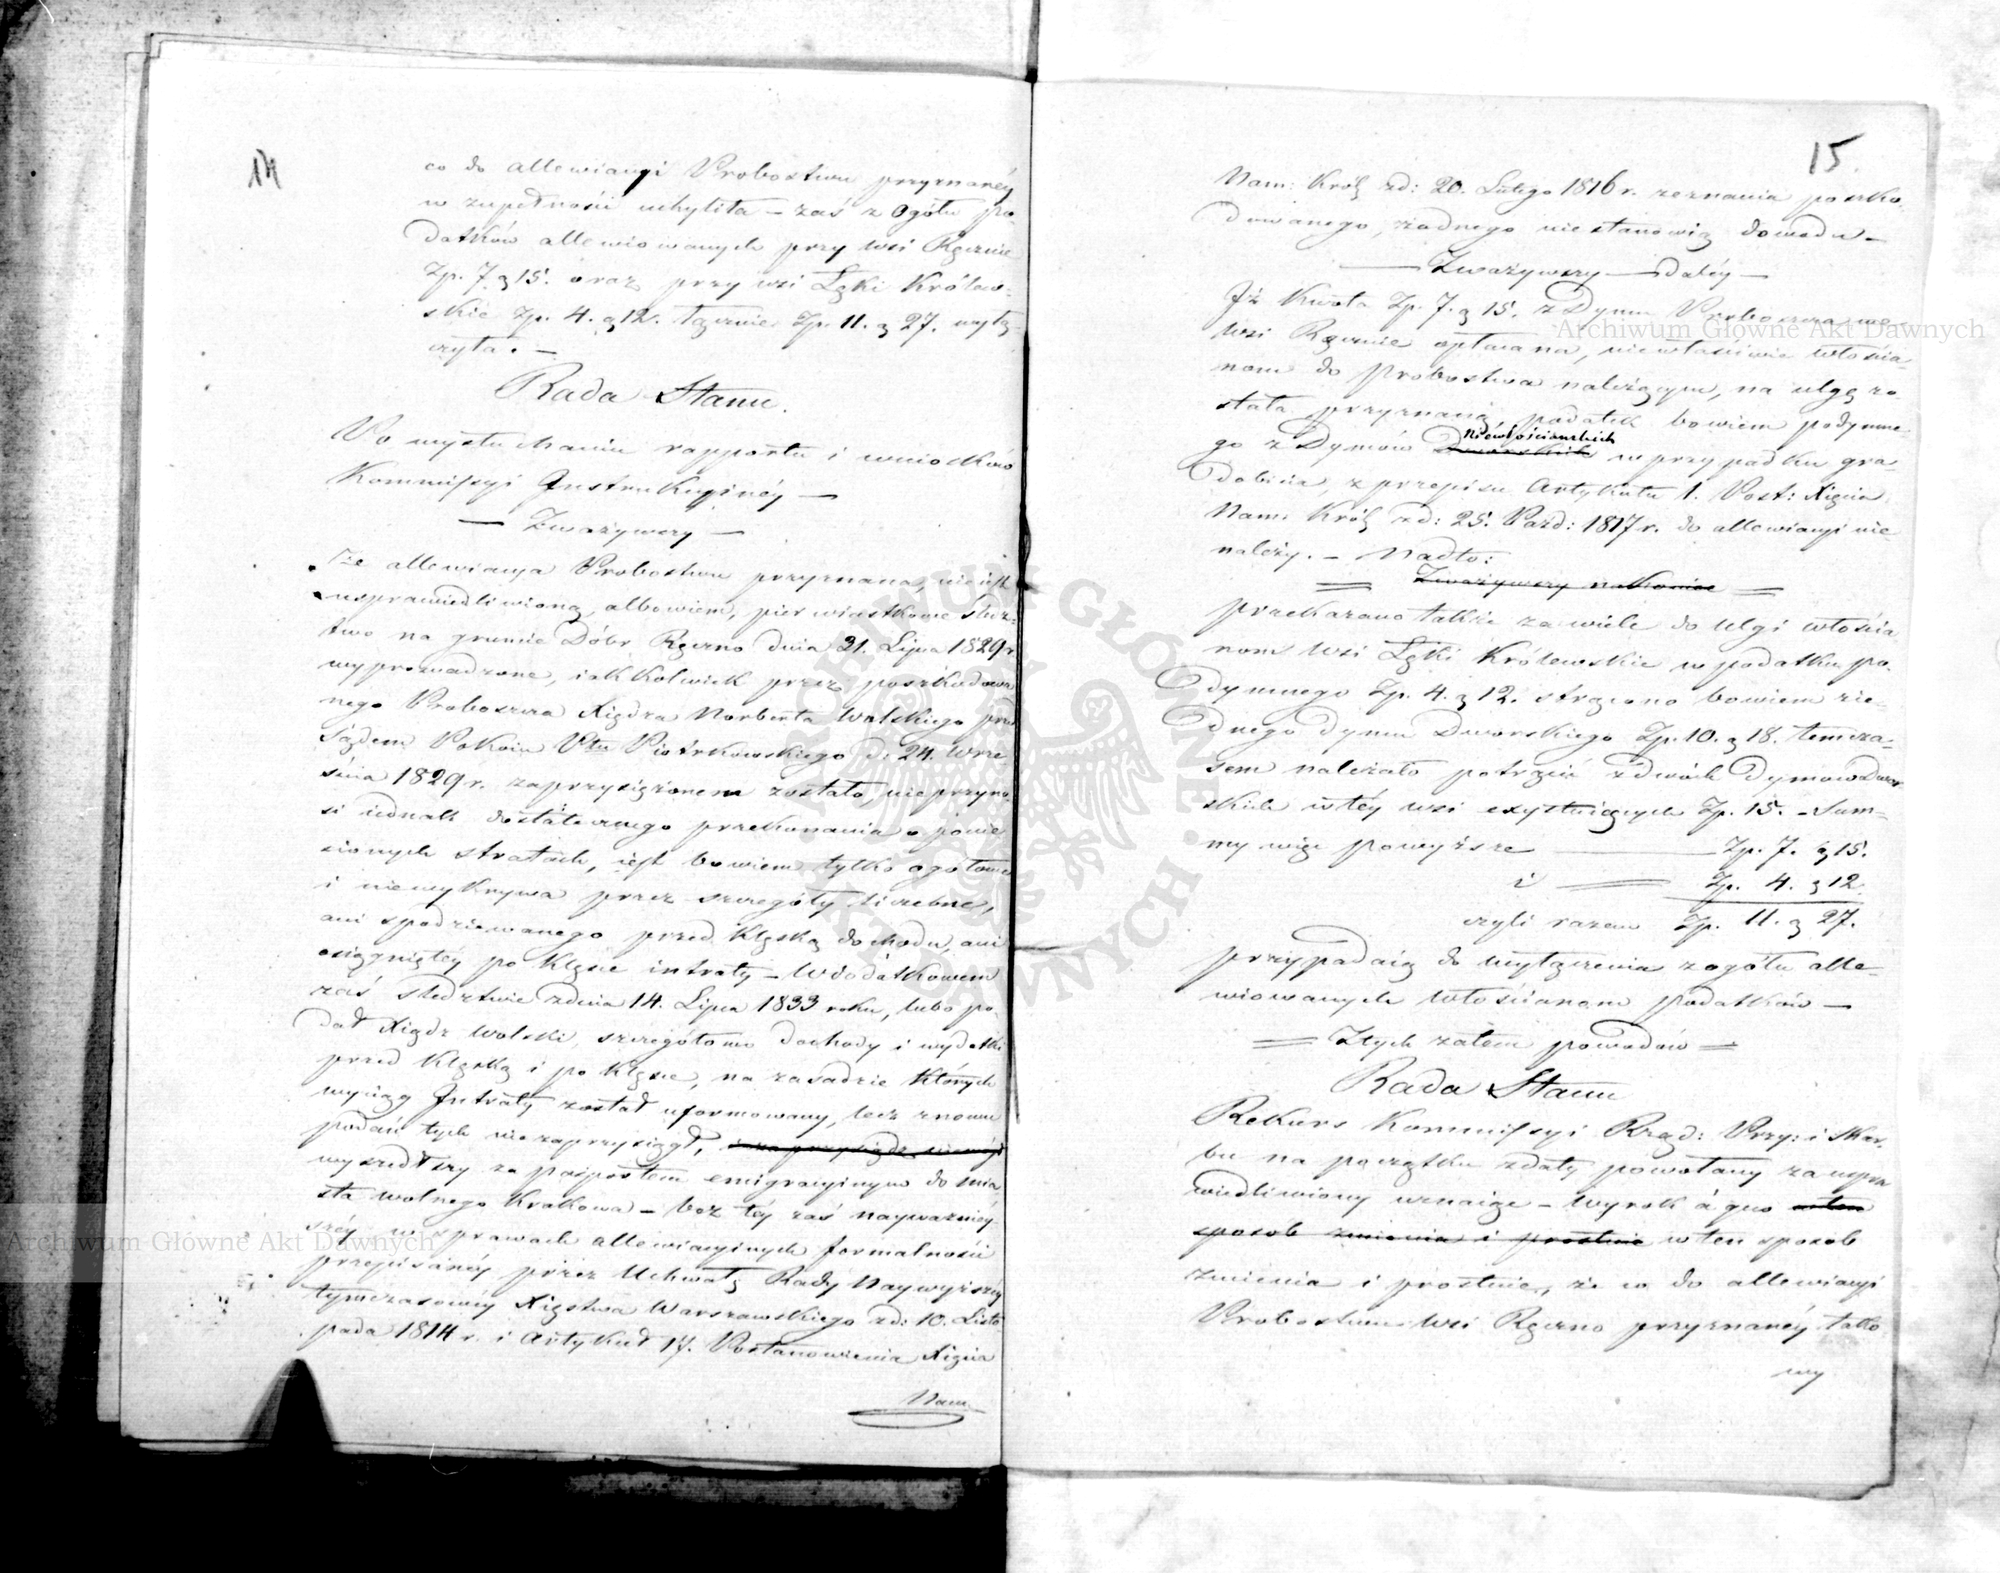 14
co do allewiacyi Probostwu przyznanéy
w zupełności uchyliła – zaś z ogółu po-
datków allewiowanych przy wsi Ręcznie
Zp. 7. g 15. oraz przy wsi Łęki Królew-
skie Zp. 4. g 12. łącznie Zp. 11. g 27. wyłą-
czyła. –
Rada Stanu.
Po wysłuchaniu rapportu i wniosków
Kommissyi Instrukcyjnéy –
– Zważywszy –
że allewiacya Probostwu przyznana, nie iest
usprawiedliwioną, albowiem, pierwiastkowe śledz-
two na gruncie Dóbr Ręczno dnia 21. Lipca 1829 r
wyprowadzone, iakkolwiek przez poszkodowa-
nego Proboszcza Xiędza Norberta Wolskiego przed
Sądem Pokoiu Ptu Piotrkowskiego d: 24. Wrze-
śnia 1829 r. zaprzysiężonem zostało, nie przyno-
si iednak dostatecznego przekonania o ponie-
sionych stratach, iest bowiem tylko ogółowe
i niewykrywa przez szczegóły liczebne,
ani spodziewanego przed klęską dochodu, ani
osiągniętéy po klęsce intraty – W dodatkowem
zaś śledztwie z dnia 14. Lipca 1833 roku, lubo po-
dał Xiądz Wolski, szczegółowo dochody i wydatki
przed klęską i po klęsce, na zasadzie których
wyciąg Intraty został uformowany, lecz znowu
podań tych niezaprzysiągł,
wyszedłszy za paszportem emigracyinym do mia-
sta wolnego Krakowa – bez téy zaś nayważniey-
széy w sprawach allewiacyinych formalności
przepisanéy przez Uchwałę Rady Naywyższéy
tymczasowéy Xięstwa Warszawskiego z d: 10. Listo-
pada 1814 r. i Artykuł 17. Postanowienia Xięcia
Nam:
15.
Nam: Król: z d: 20. Lutego 1816 r. zeznania poszko-
dowanego, żadnego niestanowią dowodu –
– Zważywszy – daléy –
Iż kwota Zp. 7. g 15. z Dymu Proboszcza we
wsi Ręcznie opłacana, niewłaściwie włościa-
nom do probostwa należącym, na ulgę zo-
stała przyznaną, podatek bowiem podymne-
go z Dymów Dworskich niewłościanskich w przypadku gra-
dobicia, z przepisu Artykułu 1. Post: Xięcia
Nam: Król: z d: 25. Paźd: 1817 r. do allewiacyi nie
należy. – Nadto:
Zważywszy nakoniec
przekazano także za wiele do ulgi włościa-
nom wsi Łęki Królewskie w podatku po-
dymnego Zp. 4. g 12. strącono bowiem z ie-
dnego dymu Dworskiego Zp. 10. g 18. temcza-
sem należało potrącić z dwóch Dymów dwor-
skich w téy wsi exystuiących Zp. 15. – Sum-
my więc powyższe Zp. 7. g 15.
i Zp. 4. g 12.
czyli razem Zp. 11. g 27.
przypadaią do wyłączenia z ogółu alle-
wiowanych włościanom podatków –
Z tych zatem powodów
Rada Stanu
Rekurs Kommissyi Rząd: Przy: i Skar-
bu na początku z daty powołany za uspra-
wiedliwiony uznaiąc – Wyrok à quo w ten
sposób zmienia i prostuie w ten sposób
zmienia i prostuie, że co do allewiacyi
Probostwu wsi Ręczno przyznanéy tako-
wy
Archiwum Główne Akt Dawnych
Archiwum Główne Akt Dawnych